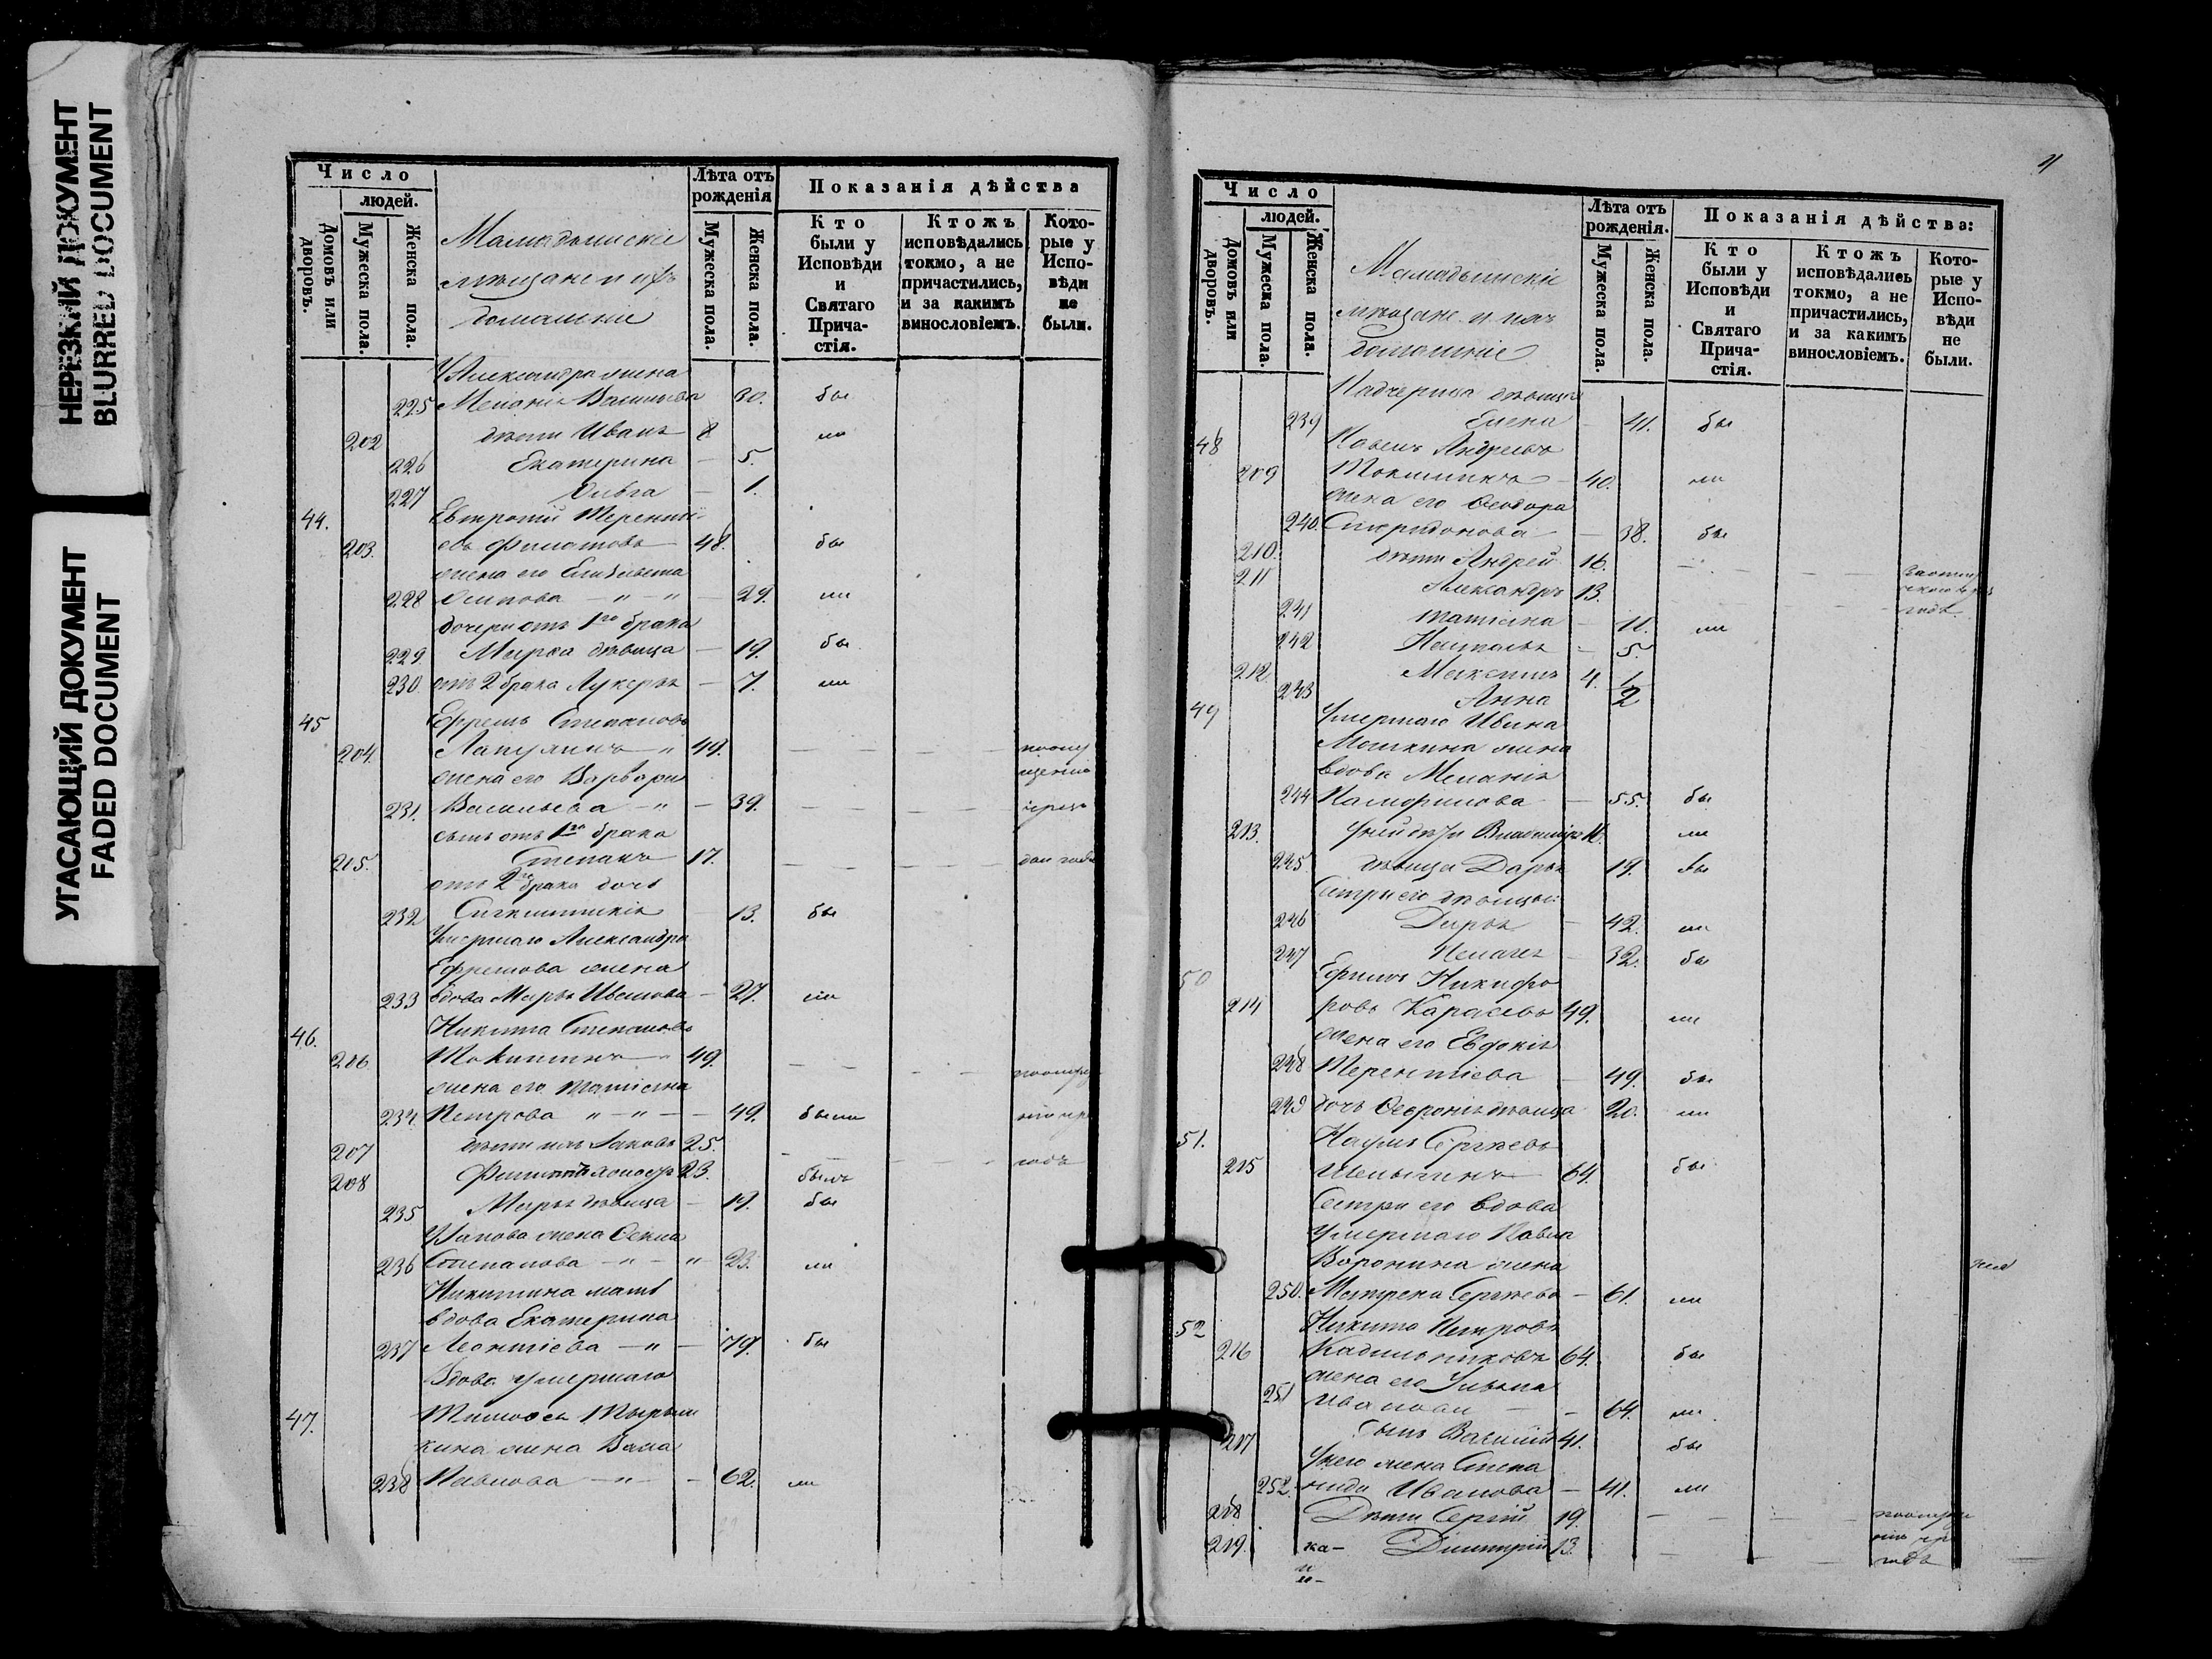 НЕРЕЗКИЙ ДОКУМЕНТ
BLURRED DOCUMENT
УГАСАЮЩИЙ ДОКУМЕНТ
FADED DOCUMENT
Число
людей.
Домовъ или дворовъ.
Мужеска пола.
Женска пола.
Мамадышскіе
мѣщане и ихъ
домашніе
Лѣта отъ рожденія
Мужеска пола.
Женска пола.
Показанія дѣйства
Кто были у Исповѣди и Святаго Прича- стія.
Ктожъ исповѣдались токмо, а не причастились, и за какимъ винословіемъ.
Кото- рые у Испо- вѣди не были.
Александра жена
225 Меланія Васильева 30. бы
202 дѣти Иванъ 8 ли
226 Екатерина — 5.
227 Ольга — 1.
44.
203. евъ Филатовъ 48. бы
жена его Елизавета
228 Осипова — " — " — 29. ли
дочери отъ 1го брака
229 Марѳа дѣвица — 19. бы
230. отъ 2 брака Лукерья — 7. ли
45 Ефремъ Степановъ
204. 49.
жена его Варвара
231. Васильева — " — 39.
сынъ отъ 1го брака
215. Степанъ 17.
отъ 2го брака дочь
232 13. бы
Умершаго Александра
Ефремова жена
233 вдова Марья Иванова — 27. ли
46. Никита Степановъ
206 49.
жена его Татіяна
234. Петрова " — " — — 49. были
207 дѣти ихъ Іаковъ 25. годъ
208 23. былъ
235 Марья дѣвица — 19. бы
жена
236 Степанова — " — " 23. ли
Никитина мать
вдова Екатерина
237 Леонтіева — " — 79. бы
Вдова умершаго
47.
жена
238 Павлова — " — — 62. ли
Число
людей.
Домовъ или дворовъ.
Мужеска пола.
Женска пола.
Мамадышскіе
мѣщане и ихъ
домашніе
Лѣта отъ рожденія.
Мужеска пола.
Женска пола.
Показанія дѣйства:
Кто были у Исповѣди и Святаго Прича- стія.
Ктожъ исповѣдались токмо, а не причастились, и за какимъ винословіемъ.
Кото- рые у Испо- вѣди не были.
Падчерица дѣвица
239 Елена — 41. бы
48 Павелъ Андреевъ
209 40. ли
жена его Ѳеодора
240. Спиридонова — — 38. бы
210. дѣти Андрей 16.
211 Александръ 13.
241 Татіана — 11. ли
242 Наталья — 5.
212. Максимъ 4.
243 Анна 1/2
49 Умершаго Ивана
жена
вдова Меланія
244 — 55. бы
213. Владиміръ ли
245 дѣвица Дарья 19. бы
Сестры его дѣвицы:
246 Дарья — 42. ли
247 Пелагея — 32. бы
50 Ефимъ Никифо
214 ровъ Карасевъ 49. ли
жена его Евдокія
248 Терентіева — 49. бы
249 дочь Ѳевронія дѣвица 20. ли
51. Наумъ Сергѣевъ
215 64. бы
Сестра его вдова
умершаго Павла
Воронина жена
250. Матрена Сергѣева — 61. ли
52 Никита Петровъ
216 Кадильниковъ 64. бы
жена его Ульяна
251 Иванова — — 64. ли
217 сынъ Василій 41. бы
У него жена Степа
252. нида Иванова — 41. ли
218 Дѣти Сергій 19.
219. Димитрій 13.